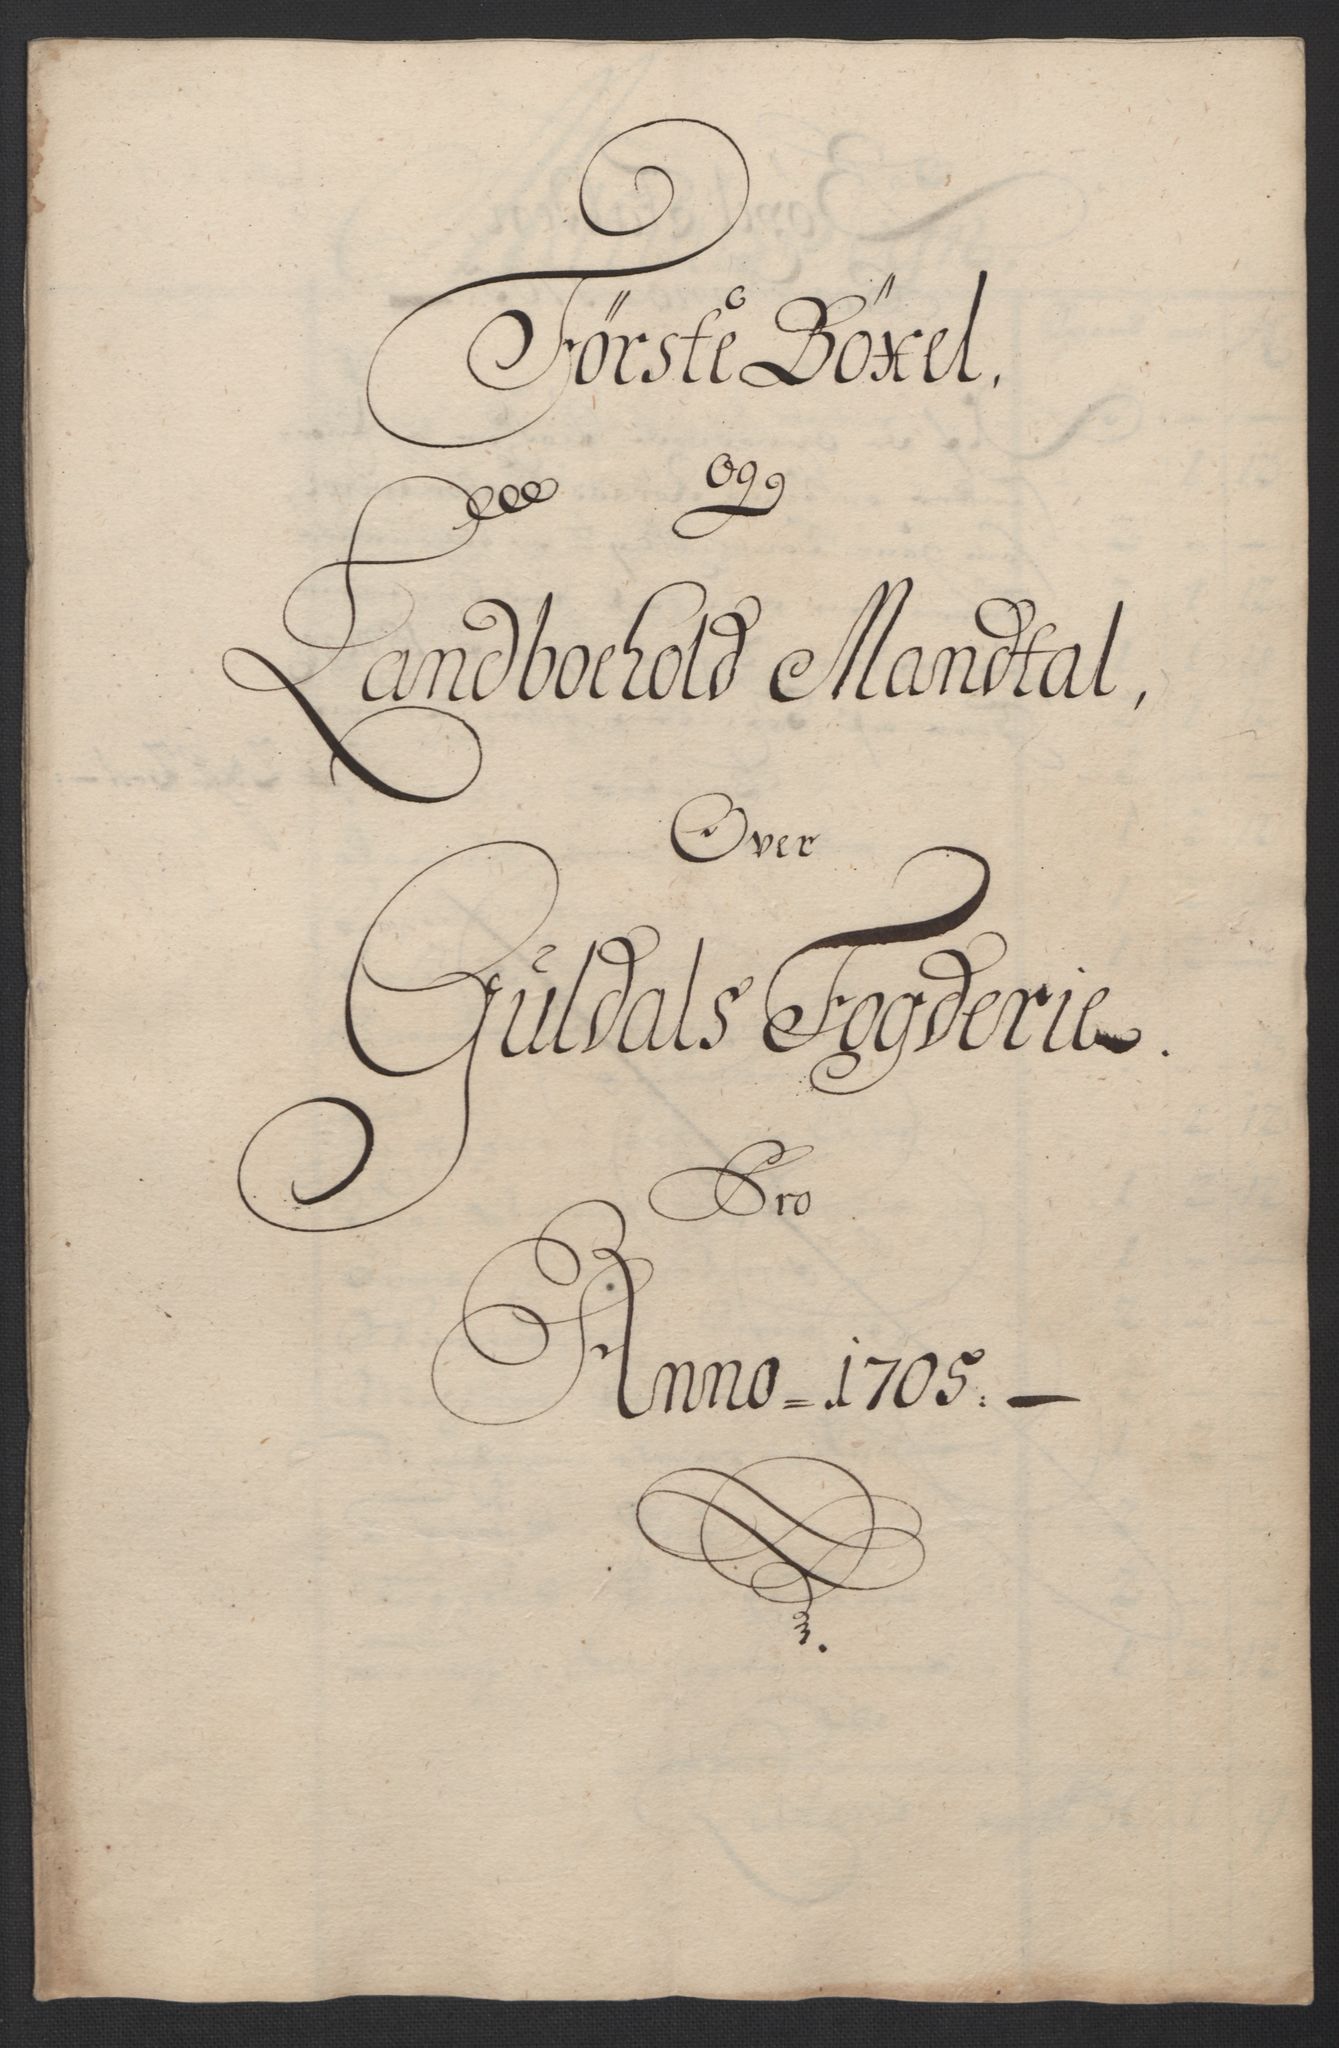 Förste Böxel,
og
Landboehold Mandtal,
Over
Guldals Fogderie.
Pro
Anno = 1705. —